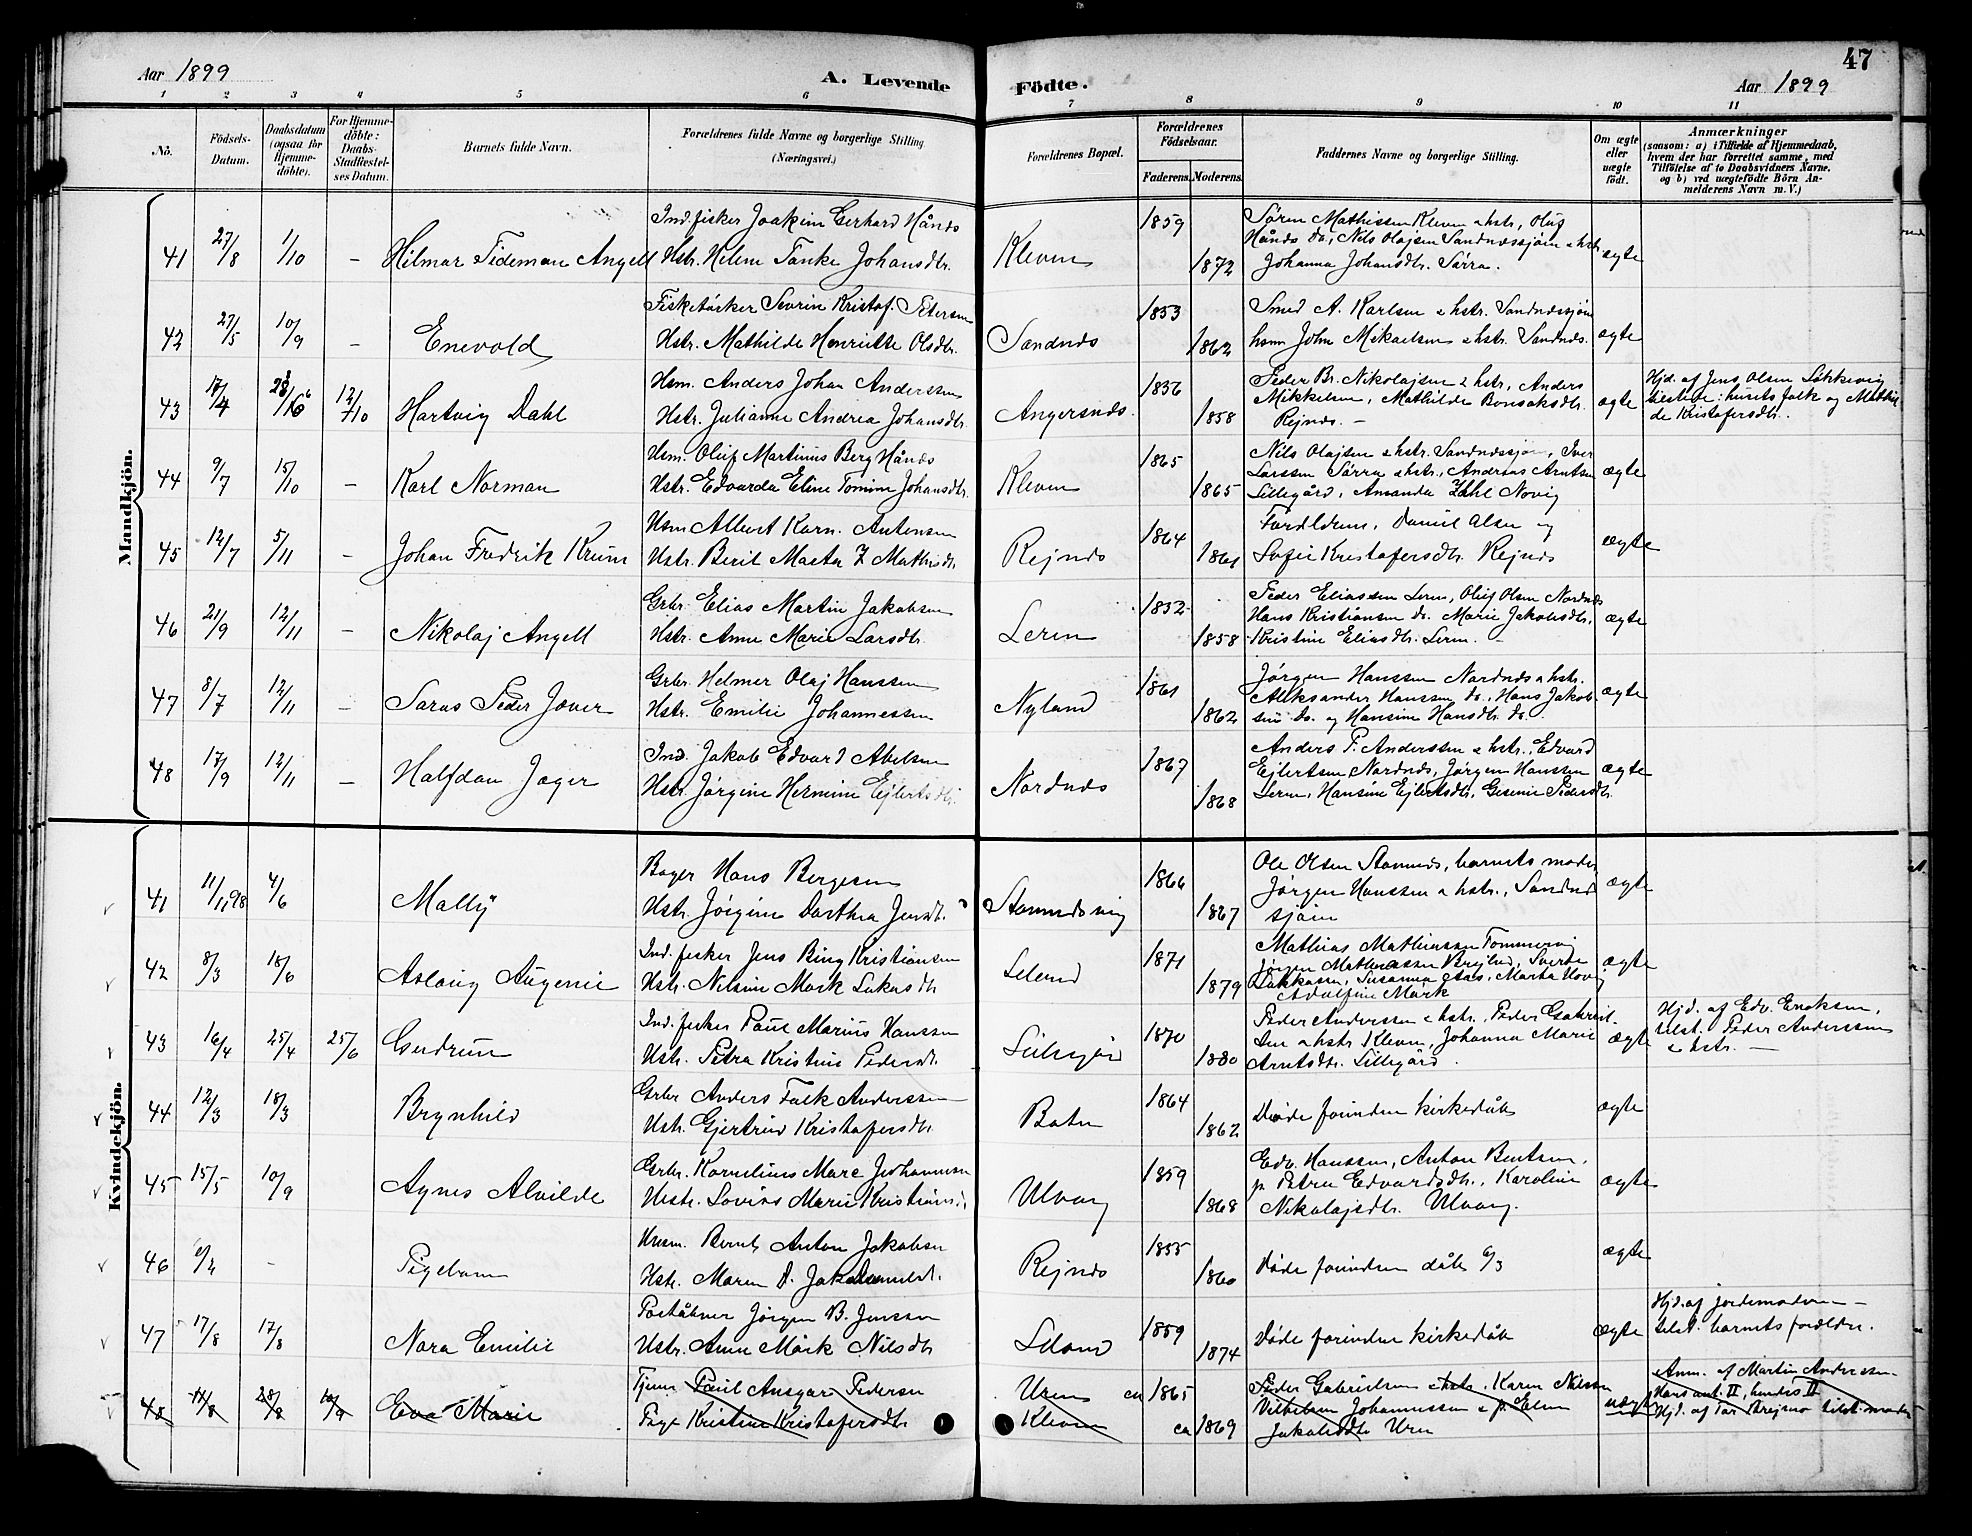 47
Aar 1899
A. Levende Födte.
Aar 1899
1 2 3 4 5 6 7 8 9 10 11
No.
Födsels-Datum.
Daabsdatum (ogsaa for Hjemme-döbte).
For Hjemme-döbte: Daabs-Stadfæstel-ses Datum.
Barnets fulde Navn.
Forældrenes fulde Navne og borgerlige Stilling (Næringsvei.)
Forældrenes Bopæl.
Forældrenes Födselsaar.
Faderens.
Moderens.
Faddernes Navne og borgerlige Stilling.
Om ægte eller uægte födt.
Anmærkninger
(saasom: a) i Tilfælde af Hjemmedaab,
hvem der har forrettet samme, med
Tilföielse af to Daabsvidners Navne.
og b) ved uægtefödte Börn An-
melderens Navn m.V.)
Mandkjön.
Ind. fisker Joakim Gerhard Hånds 1859 Søren Mathissen Kleven & hstr, Oluf
41 27/8 1/10 - Hilmar Tideman Angell Hstr. Helene Tanke Johansdtr. Kleven 1872 Hånds do, Nils Olajsen Sandnessjøen & hstr ægte
Johanna Johansdtr. Sørra.
Fisketørker Sevrin Kristof. Petersen 1853 Smed A. Karlsen & hstr. Sandnessjøen
42 27/5 10/9 - Enevold Hstr. Mathilde Henriette Olsdtr. Sandnes 1862 hsm John Mikaelsen & hstr. Sandnes. ægte
Hsm. Anders Johan Anderssen 1836 Peder Br. Nikolajsen & hstr, Anders Hjd. af Jens Olsen Løkkevig
43 17/4 12/10 Hartvig Dahl Hstr. Julianne Andrea Johansdtr. Angersnes. 1858 Mikkelsen, Mathilde Bonsaksdtr. ægte tilstede: husets folk og Mathil
Rejnes. - de Kristofersdtr.
Hsm. Oluf Martinus Berg Hånds 1865 Nils Olajsen & hstr. Sandnessjøen, Iver
44 9/7 15/10 - Karl Norman Hstr. Edvarda Eline Tomine Johansdtr. Kleven 1865 Larssen Sørra & hstr., Andreas Arntsen ægte
Lillegård, Amanda Zahl Novig
Hsm Albert Korn. Antonsen 1864 Forældrene, Daniel Olsen og
45 12/7 5/11 - Johan Fredrik Krum Hstr. Beril Marta Z Mathisdtr. Rejnes 1861 Sofie Kristofersdtr. Rejnes ægte
Grbr. Elias Martin Jakobsen 1832 Peder Eliassen Leren, Oluf Olsen Nordnes
46 21/9 12/11 - Nikolaj Angell Hstr. Anne Marie Larsdtr. Leren 1858 Hans Kristiansen do. Marie Jakobsdtr. ægte
Kristine Eliasdtr. Leren. -
Grbr. Helmer Olaj Hanssen 1861 Jørgen Hanssen Nordnes & hstr.
47 8/7 12/11 - Saras Peder Jæver Hstr. Emilie Johannessen Nyland 1862 Aleksander Hanssen do. Hans Jakob ægte
sen do. og Hansine Hansdtr. do.
Ind. Jakob Edvard Abelsen 1867 Anders P. Anderssen & hstr., Edvard
48 17/9 12/11 - Halfdan Jager Hstr. Jørgine Hermine Ejlertsdtr. Nordnes 1868 Ejlertsen Nordnes, Jørgen Hanssen ægte
Leren, Hansine Ejlertsdtr., Gesenie Pedersdtr.
Kvindekjön.
Bager Hans Bergesen 1866 Ole Olsen Stamnes, barnets moder
41 11/11 98 4/6 Mally Hstr. Jørgine Dorthea Jensdt. Stamnesvig 1867 Jørgen Hanssen & hstr., Sandnes ægte
sjøen
Ind. fisker Jens Bing Kristiansen 1871 Mathias Mathiassen Tommervig
42 8/3 18/6 Aslaug Augenie Hstr. Nilsine Mork Lukasdtr. Leland 1879 Jørgen Mathiassen ægte
Adolfine Mårk
Ind. fisker Paul Marius Hanssen 1870 Peder Anderssen & hstr., Peder Gabriel- Hjd. af Edv. Enoksen,
43 16/4 25/4 25/6 Gudrun Hstr. Petra Kristine Pedersdt. 1880 sen & hstr Kleven, Johanna Marie ægte tilst. Peder Anderssen
Arntsdtr. Lillegård. & hstr. -
Grbr Anders Falk Anderssen 1864
44 12/3 18/3 Brynhild Hstr. Gjertrud Kristofersdtr. Botn 1862 Døde forinden kirkedåb ægte
Grbr. Kornelius Marc Johannessen 1859 Edv. Hanssen, Anton Bentsen,
45 15/5 10/9 Agnes Alvilde Hstr. Lovise Marie Kristians. Ulvang 1868 p. Petra Edvardsdtr., Karoline ægte
Nikolajsdtr. Ulvang.
Husm. Bernt Anton Jakobsen 1855
46 - Pigebarn Hstr. Maren D. Rejnes 1860 Døde forinden dåb 6/3 ægte
Poståbner Jørgen B. Jenssen 1859 Hjd. af jordemoderen -
47 17/8 17/8 Nora Emilie Hstr. Anne Mårk Nilsdtr Leland 1874 Døde forinden kirkedåb ægte tilst. barnets forældre.
Tjener Paul Ansgar Pedersen Uren ca 1865 Peder Gabrielsen & hstr. Karen Nilssen Anm. af Martin Anderssen.
48 14/8 28/8 10/9 Eva Marie Pige Kristine Kristofersdtr. Kleven ca 1869 Vilhelm Johannessen & p. Elen uægte Hans ant. II, hendes II
Jakobsdtr Uren Hjd. af